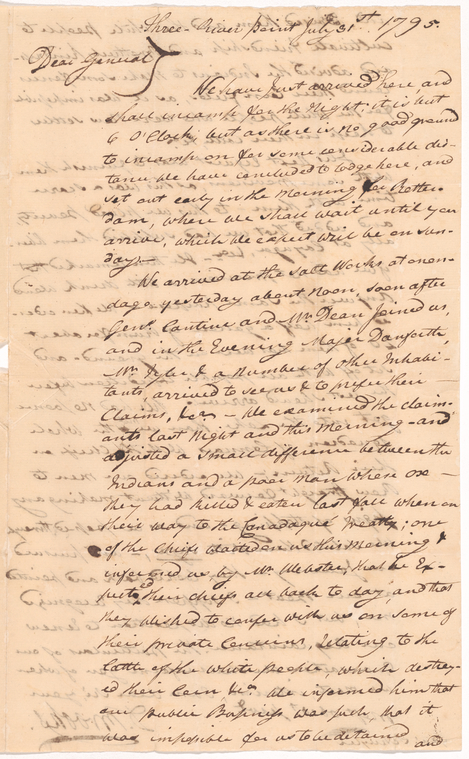 Three-River Point July 31st. 1795.
Dear General
We have just arrived here, and
shall incamp for the Night; it is but
6 O'Clock, but as there is no good ground
to incamp on for some considerable dis-
tance, we have concluded to lodge here, and
set out early in the Morning for Rotter-
dam, where we shall wait until you
arrive, which we expect will be on Sun-
day.
We arrived at the Salt Works at onon-
daga yesterday about Noon, soon after
Genl. Cantine and Mr. Dean Joined us,
and in the Evening Major Danforth
Mr. & a Number of other Inhabi-
tants, arrived to see us & to prefer their
Claims, &ca — We examined the claim-
ants last Night and this Morning — and
adjusted a small difference between the
Indians and a poor Man whose ox
they had killed & eaten last fall when on
their way to the Canadaque Treaty; one
of the Chiefs waited on us this Morning &
informed us by Mr. Webster, that he Ex-
pected their chiefs all back to day, and that
they wished to confer with us on some of
their private Concerns, Relating to the
Cattle of the white people, which destroy-
ed their Corn &ca. We informed him that
our public Business was such that it
was impossible for us to be detained
and